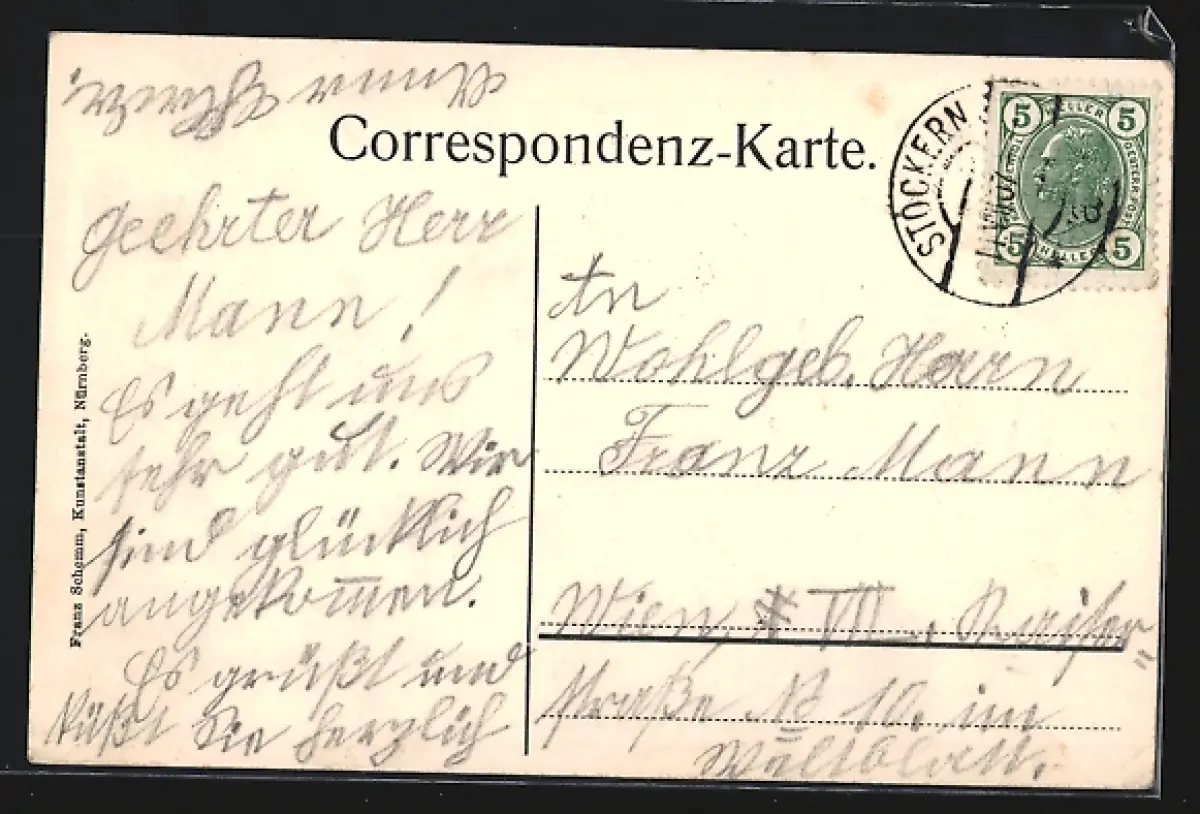 Correspondenz-Karte.
STOCKERN
5 HELLER 5
OESTERR. POST
5 HELLER 5
Geehrter Herr
Mann!
Es geht uns
sehr gut. Wir
sind glücklich
angekommen.
Es grüßt und
küßt Sie herzlich
Anna
An
Wohlgeb. Herrn
Franz Mann
Wien, VII., Kaiser
straße № 10. im
Franz Schemm, Kunstanstalt, Nürnberg.